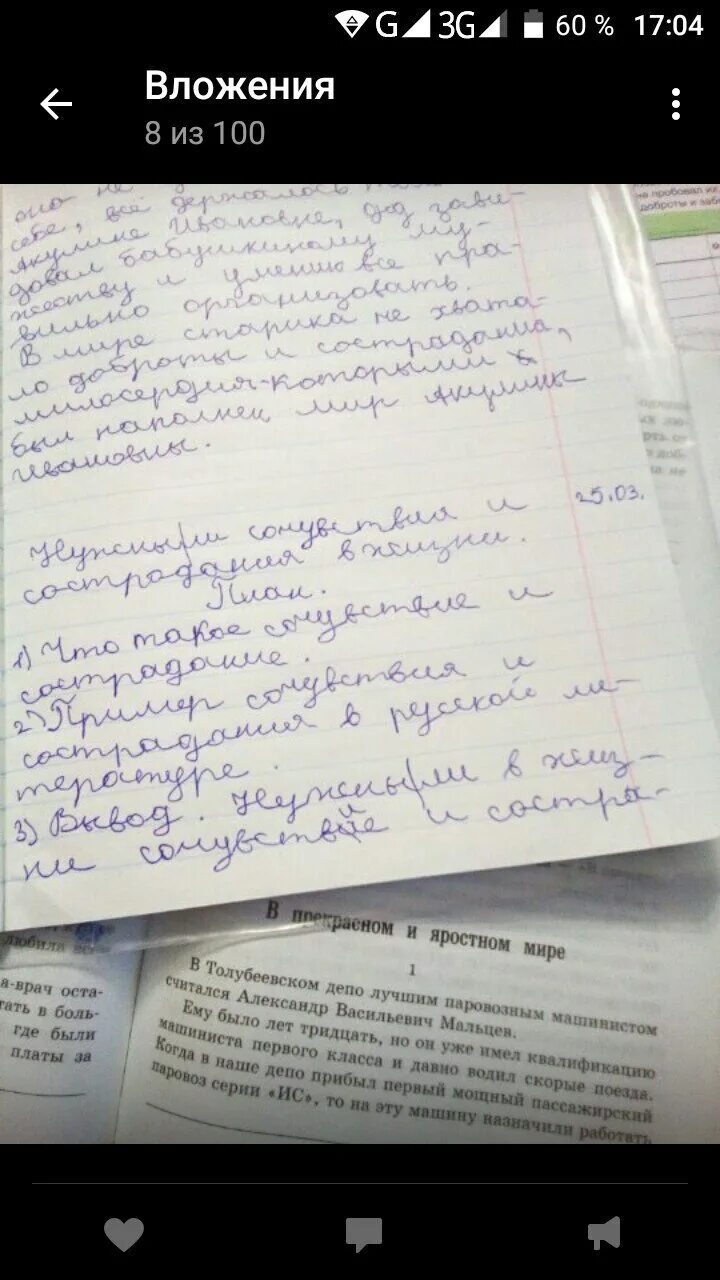 G 3G 60 % 17:04
Вложения
8 из 100
оно не
себе, всё держалось
Акулине Ивановне, дед зави-
довал бабушкиному му-
жеству и умению все пра-
вильно организовать.
В мире старика не хвата-
ло доброты и сострадания,
милосердия-которыми
был наполнен мир Акулины
Ивановны.
не пробовал их
доброты и заб
25.03.
Нужны ли сочувствия и
сострадания в жизни.
План.
1) Что такое сочувствие и
сострадание.
2) Пример сочувствия и
сострадания в русской ли-
тературе.
3) Вывод. Нужны ли в жиз-
ни сочувствие и состра-
любила
а-врач оста-
тать в боль-
где были
платы за
В прекрасном и яростном мире
1
В Толубеевском депо лучшим паровозным машинистом
считался Александр Васильевич Мальцев.
Ему было лет тридцать, но он уже имел квалификацию
машиниста первого класса и давно водил скорые поезда.
Когда в наше депо прибыл первый мощный пассажирский
паровоз серии «ИС», то на эту машину назначили работать